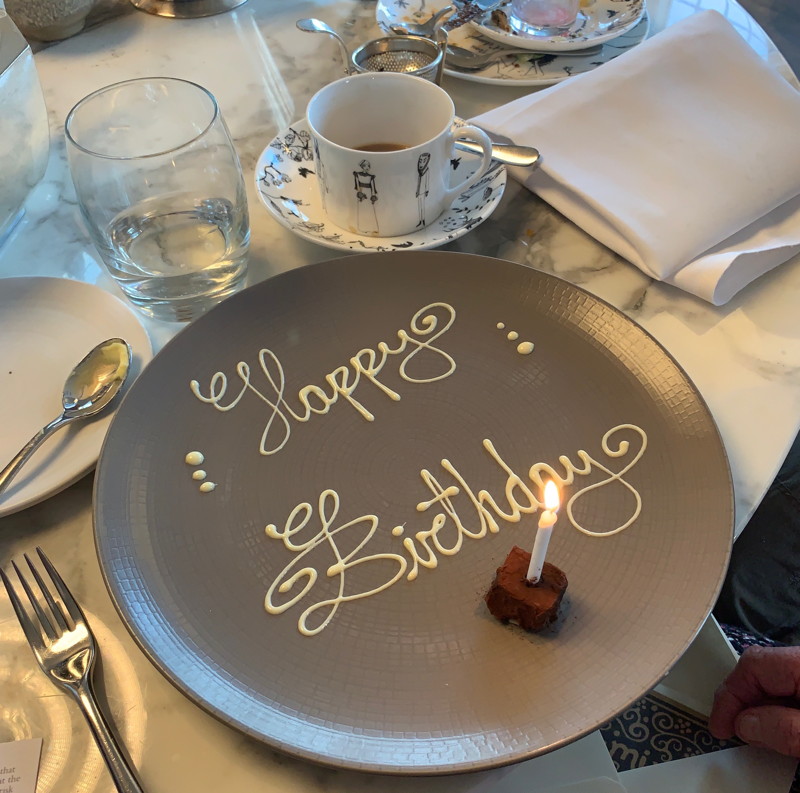 Happy
Birthday
that
at the
mi